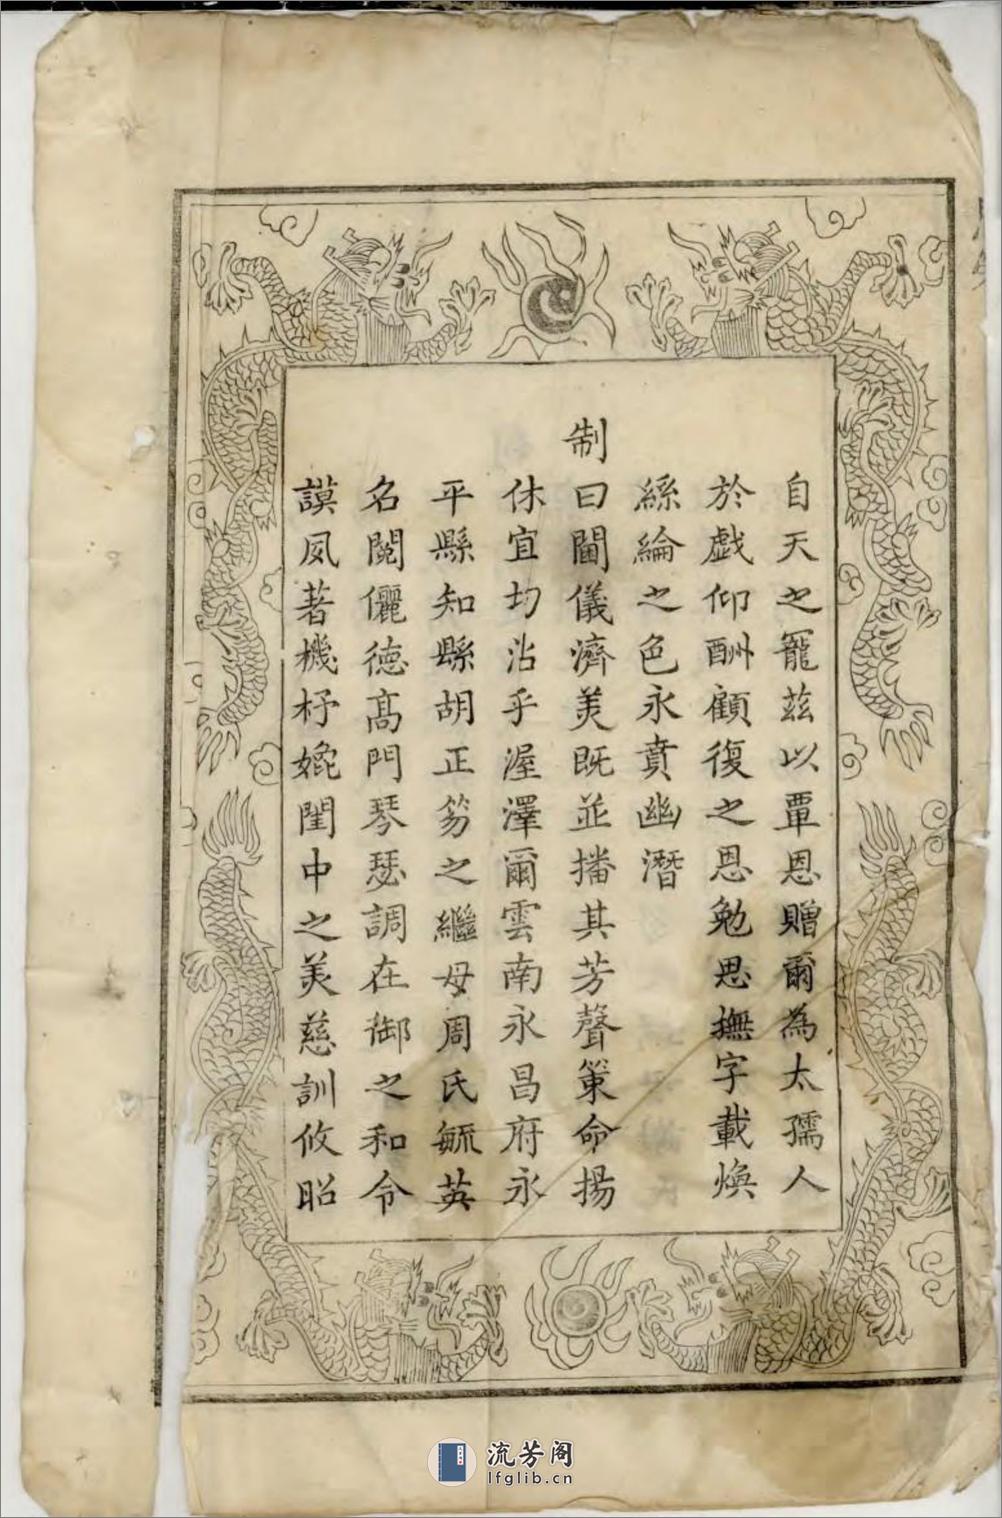 自天之寵茲以覃恩贈爾為太孺人
於戯仰酬顧復之恩勉思撫字載煥
絲綸之色永賁幽潛
制曰閫儀濟美既並播其芳聲策命揚
休宜均沾乎渥澤爾雲南永昌府永
平縣知縣胡正笏之繼母周氏毓英
名閥儷德高門琴瑟調在御之和令
謨夙著機杼嫓閨中之美慈訓攸昭
流芳阁
lfglib.cn